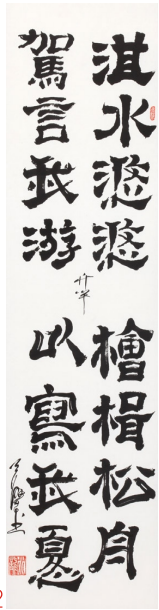 淇水滺滺 檜楫松舟
駕言我游 以寫我憂
竹竿